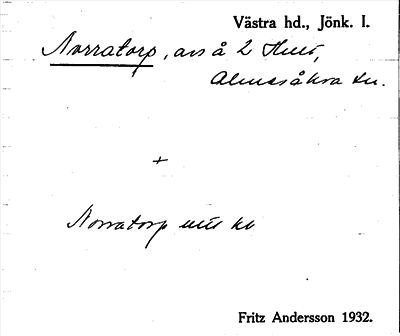 Västra hd., Jönk. l.
Norratorp, avs å 2 Hult,
Almesåkra sn.
+
Norratorp
Fritz Andersson 1932.